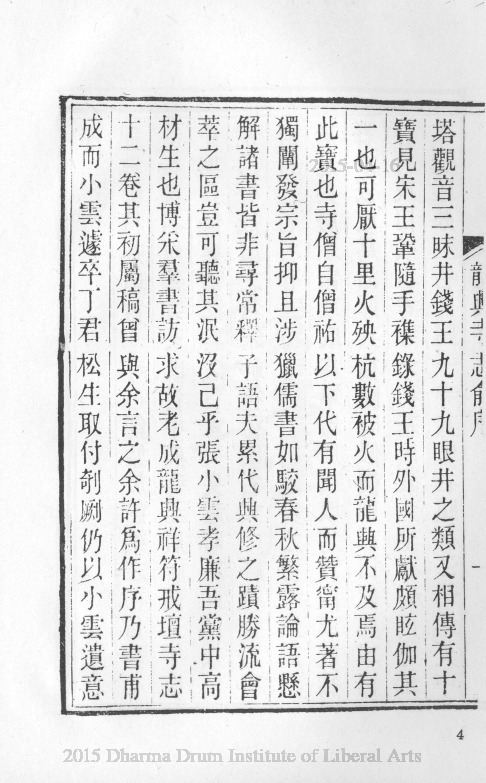 龍興寺志俞序
塔觀音三昧井錢王九十九眼井之類又相傳有十
寶見宋王鞏隨手襍錄錢王時外國所獻頗眩伽其
一也可厭十里火殃杭數被火而龍興不及焉由有
此寶也寺僧自僧祐以下代有聞人而贊甯尤著不
獨闡發宗旨抑且涉獵儒書如駮春秋繁露論語懸
解諸書皆非尋常釋子語夫累代興修之蹟勝流會
萃之區豈可聽其泯沒己乎張小雲孝廉吾黨中高
材生也博采羣書訪求故老成龍興祥符戒壇寺志
十二卷其初屬稿曾與余言之余許爲作序乃書甫
成而小雲遽卒丁君松生取付剞劂仍以小雲遺意
4
2015 Dharma Drum Institute of Liberal Arts